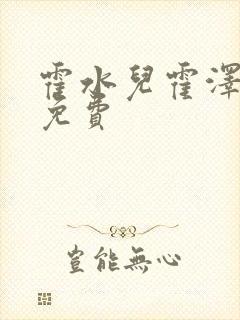 霍水兒霍澤
免費
豈能無心